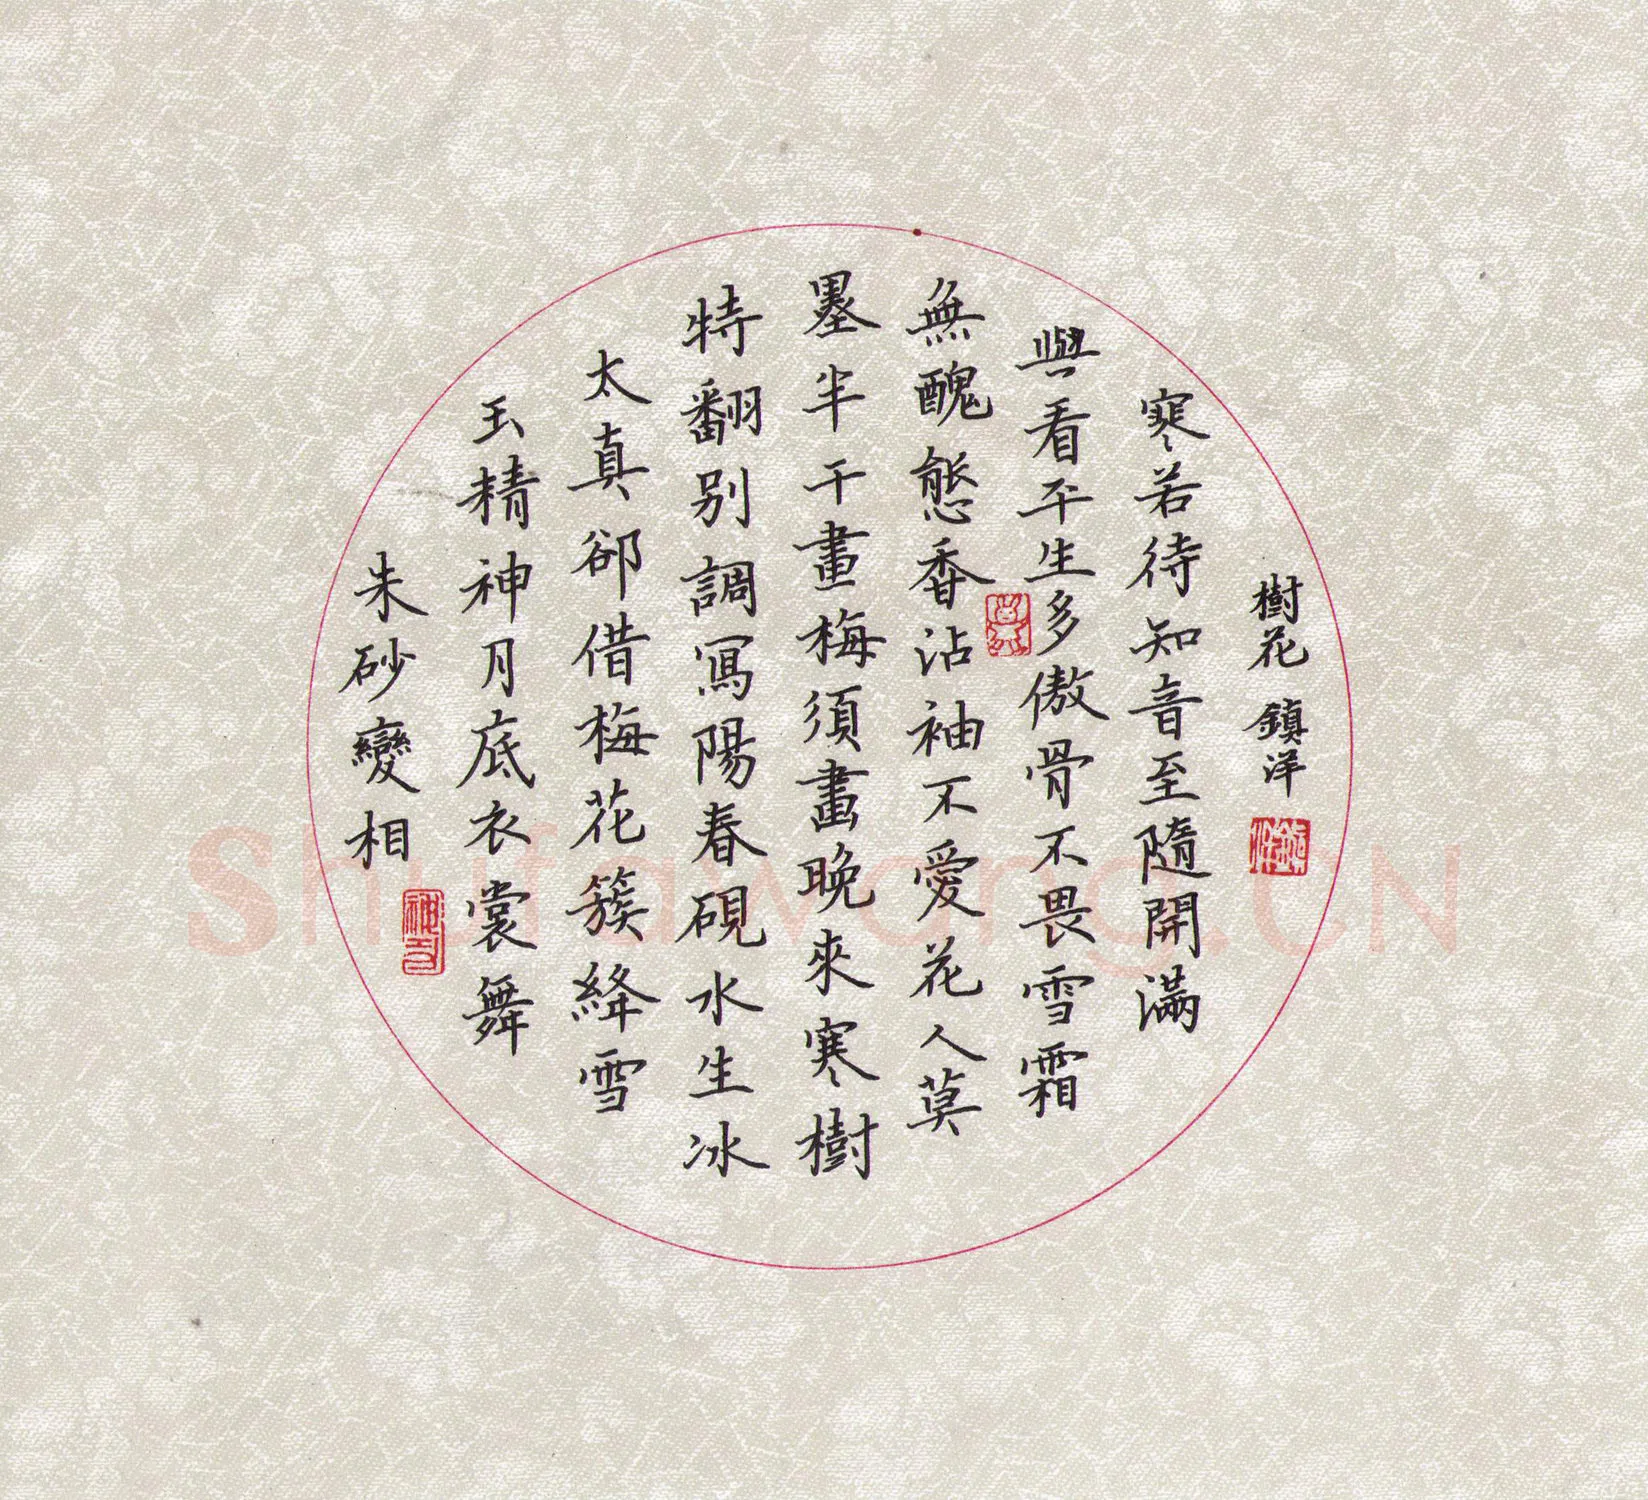 朱砂變相
玉精神月底衣裳舞
太真卻借梅花簇絳雪
特翻别調寫陽春硯水生冰
墨半干畫梅須畫晚來寒樹
無醜態香沾袖不愛花人莫
與看平生多傲骨不畏雪霜
寒若待知音至隨開滿
樹花 鎮洋
Shufawang.CN